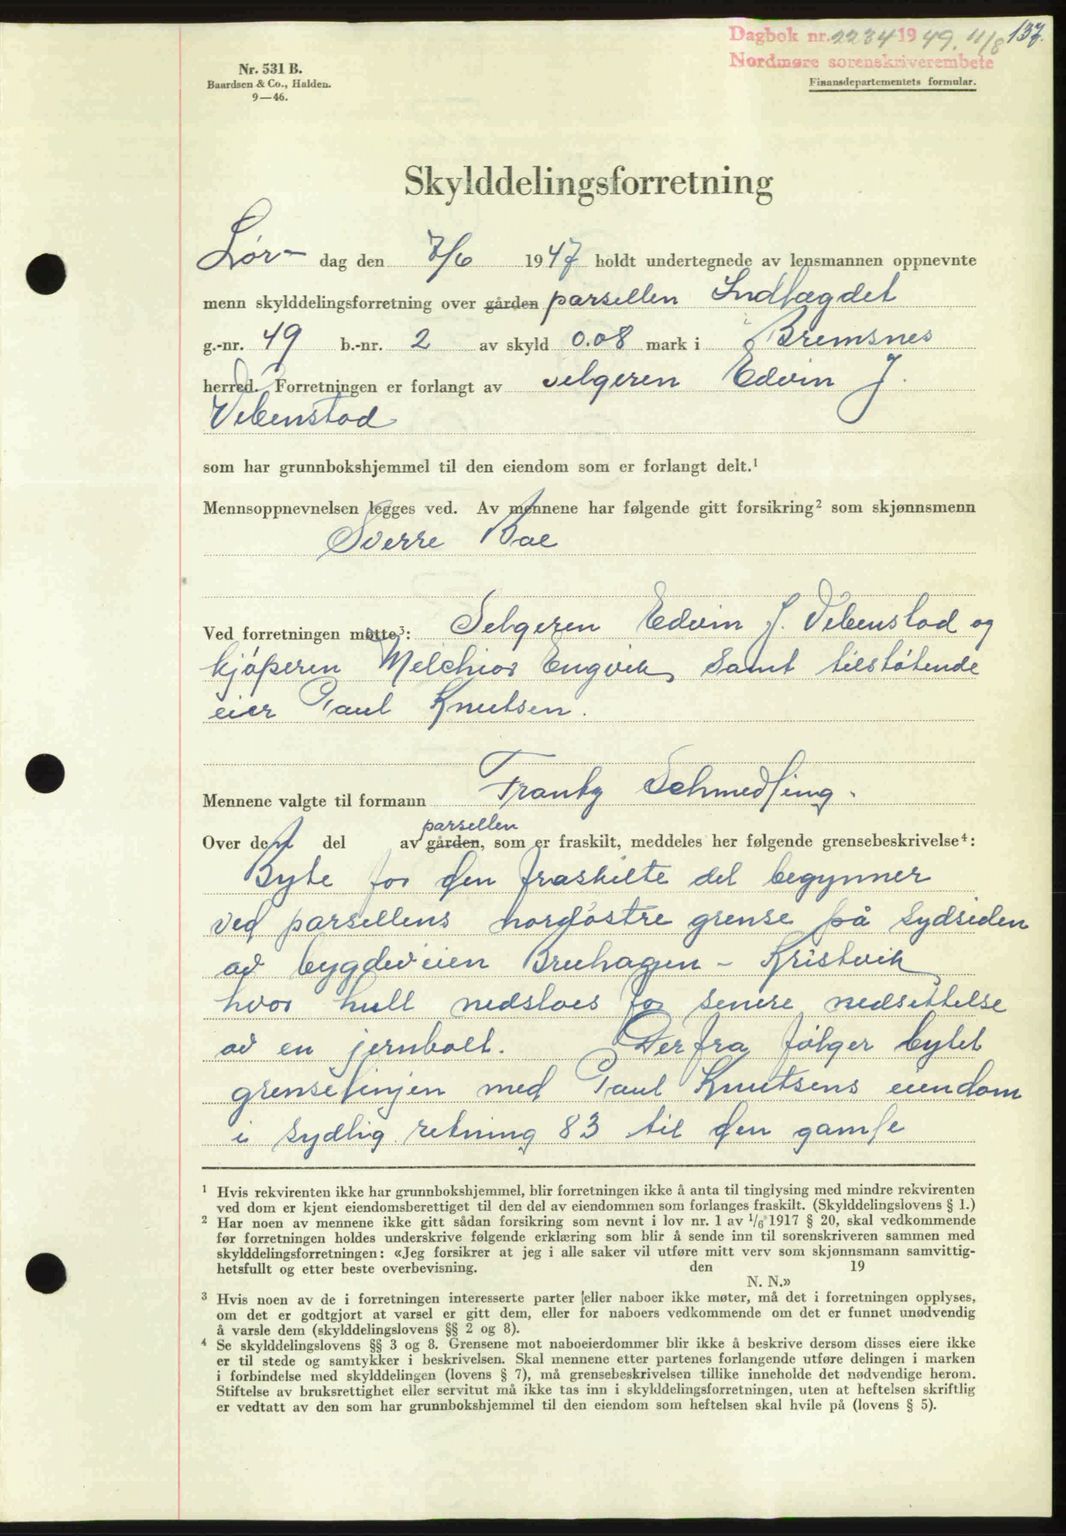 Dagbok nr. 2234 1949. 11/8 137.
Nordmøre sorenskriverembete
Nr. 531 B.
Baardsen & Co., Halden.
9—46.
Finansdepartementets formular.
Skylddelingsforretning
Lør- dag den 7/6 1947 holdt undertegnede av lensmannen oppnevnte
menn skylddelingsforretning over gården parsellen Indlægdet
g.-nr. 49 b.-nr. 2 av skyld 0.08 mark i Bremsnes
herred. Forretningen er forlangt av selgeren Edvin J.
Vebenstad
som har grunnbokshjemmel til den eiendom som er forlangt delt.¹
Mennsoppnevnelsen legges ved. Av mennene har følgende gitt forsikring² som skjønnsmenn
Sverre Bae
Ved forretningen møtte³: Selgeren Edvin J. Vebenstad og
kjøperen Melchior Engvik, samt tilstøtende
eier Paul Knutsen.
Mennene valgte til formann Frantz Schmedling.
parsellen
Over den del av gården, som er fraskilt, meddeles her følgende grensebeskrivelse⁴:
Byte for den fraskilte del begynner
ved parsellens nordøstre grense på sydsiden
av bygdeveien Bruhagen - Kristvik
hvor hull nedsloes for senere nedsettelse
av en jernbolt. Derfra følger bytet
grenselinjen med Paul Knutsens eiendom
i sydlig retning 83 til den gamle
¹ Hvis rekvirenten ikke har grunnbokshjemmel, blir forretningen ikke å anta til tinglysing med mindre rekvirenten
ved dom er kjent eiendomsberettiget til den del av eiendommen som forlanges fraskilt. (Skylddelingslovens § 1.)
² Har noen av mennene ikke gitt sådan forsikring som nevnt i lov nr. 1 av 1/6 1917 § 20, skal vedkommende
før forretningen holdes underskrive følgende erklæring som blir å sende inn til sorenskriveren sammen med
skylddelingsforretningen: «Jeg forsikrer at jeg i alle saker vil utføre mitt verv som skjønnsmann samvittig-
hetsfullt og etter beste overbevisning. den 19
N. N.»
³ Hvis noen av de i forretningen interesserte parter eller naboer ikke møter, må det i forretningen opplyses,
om det er godtgjort at varsel er gitt dem, eller for naboers vedkommende om det er funnet unødvendig
å varsle dem (skylddelingslovens §§ 2 og 8).
⁴ Se skylddelingslovens §§ 3 og 8. Grensene mot naboeierdommer blir ikke å beskrive dersom disses eiere ikke
er til stede og samtykker i beskrivelsen. Skal mennene etter partenes forlangende utføre delingen i marken
i forbindelse med skylddelingen (lovens § 7), må grensebeskrivelsen tillike inneholde det nødvendige herom.
Stiftelse av bruksrettighet eller servitut må ikke tas inn i skylddelingsforretningen, uten at heftelsen skriftlig
er vedtatt av den som har grunnbokshjemmel til den eiendom som heftelsen skal hvile på (lovens § 5).